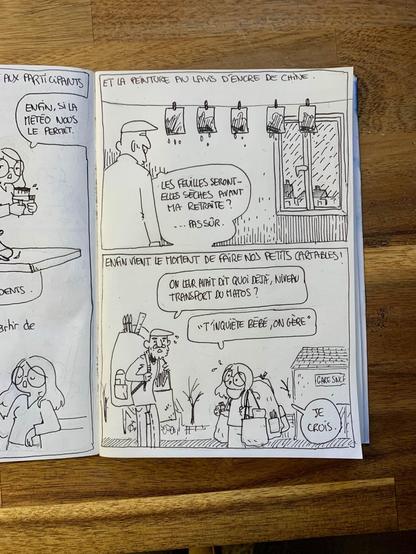 AUX PARTICIPANTS
ENFIN, SI LA
MÉTÉO NOUS
LE PERMET.
DENTS.
artir de
ET LA PEINTURE AU LAVIS D'ENCRE DE CHINE.
LES FEUILLES SERONT-
ELLES SÈCHES AVANT
MA RETRAITE?
... PAS SÛR.
ENFIN VIENT LE MOMENT DE FAIRE NOS PETITS CARTABLES!
ON LEUR AVAIT DIT QUOI DÉJÀ, NIVEAU
TRANSPORT DU MATOS?
"T'INQUIÈTE BÉBÉ, ON GÈRE"
GARE SNCF
JE
CROIS.